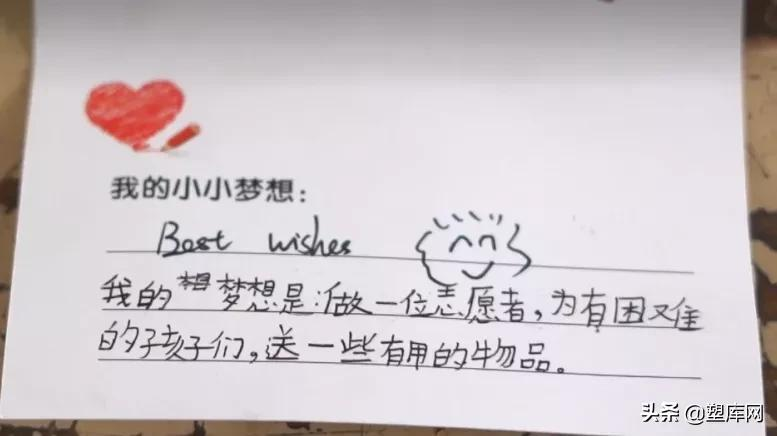 我的小小梦想：
Best wishes
我的想梦想是做一位志愿者，为有困难
的孩子们，送一些有用的物品。
头条 @塑库网